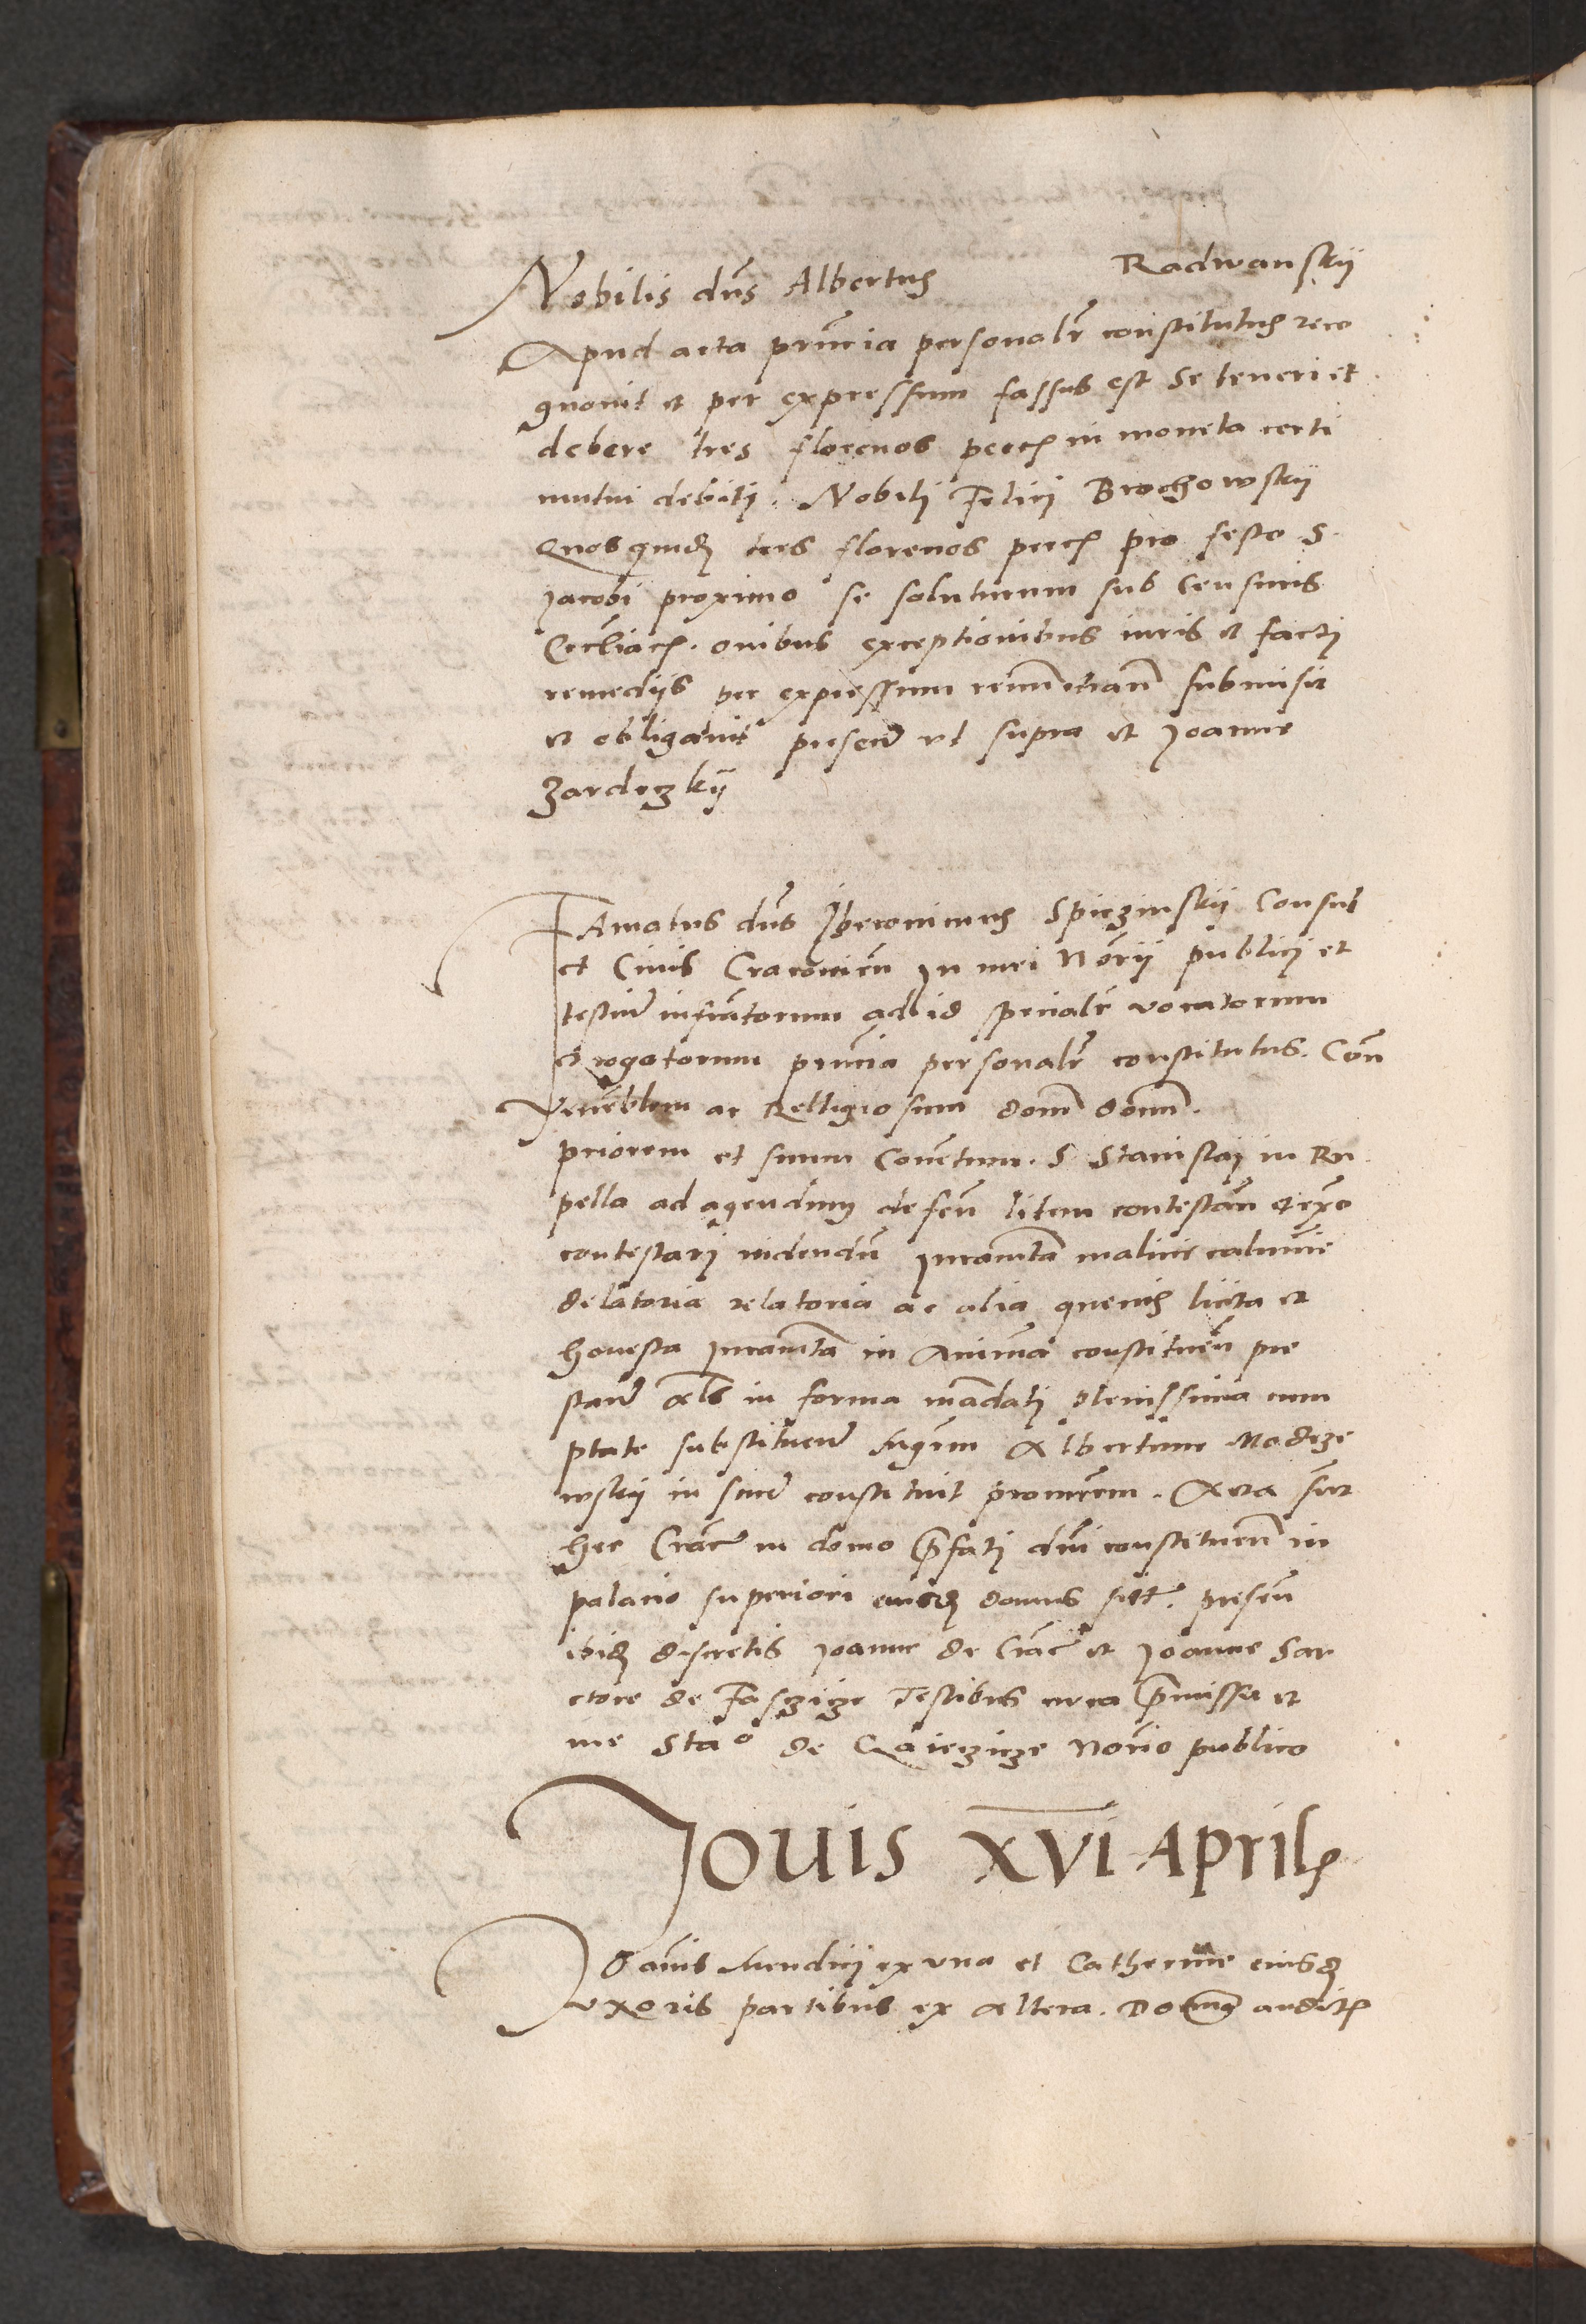 Nobilis dns Albertus Radwanskij
Apud acta pñtia personalr constitutus reco
gnovit et per expressum fassus est se teneri et
debere tres florenos pecc in moneta certi
mutui debitj. Nobilj Felicj Brochowskij
Quosquidem tres florenos pecc pro festo S.
Jacobi proximo se soluturum sub censuris
Eccliac. onibus exceptionibus iuris et factj
remedijs per expressum renunctian submisit
et obligavit presen vt supra et Joanne
Zardeczkij
Famatus dns Jheronimus Spiczinskij Consul
et Civis Cracovien In mei Norij publicj et
testiu infratorum ad id specialr vocatorum
et rogatorum pñtia personalr constitutus. Con
Venerablem ac Relligiosum dom domi.
priorem et suum Conventum. S Stanislaj in Ru
pella ad agendum defen litem contestan
contestarj videndum Juramta malicie calumnie
delatoria relatoria ac alia quevis licita et
honesta Juramta in Animam constituen pre
stand als in forma mandatj plenissima cum
ptate substituend Albertum Modrze
wskij in constituit procurem. Acta sut
hec Crac in domo pfatj dni constituen in
palacio superiori eiusdem domus presen
ibidem discretis Joanne de Crac et Joanne Sar
ctore de Tesibus circa pmissa et
me Stao de Norio publico
Jouis XVI Aprilis
Joannis ex vna et Catherine eiusdem
vxoris partibus ex altera. Dominus auditis